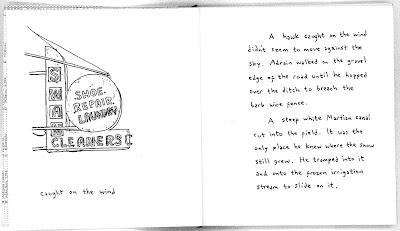 SWAN
SHOE
REPAIR
LAUNDRY
CLEANERS
caught on the wind
A hawk caught on the wind
didn't seem to move against the
sky. Adrain walked on the gravel
edge of the road until he hopped
over the ditch to breach the
barb wire fence.
A steep white Martian canal
cut into the field. It was the
only place he knew where the snow
still grew. He tramped into it
and onto the frozen irrigation
stream to slide on it.